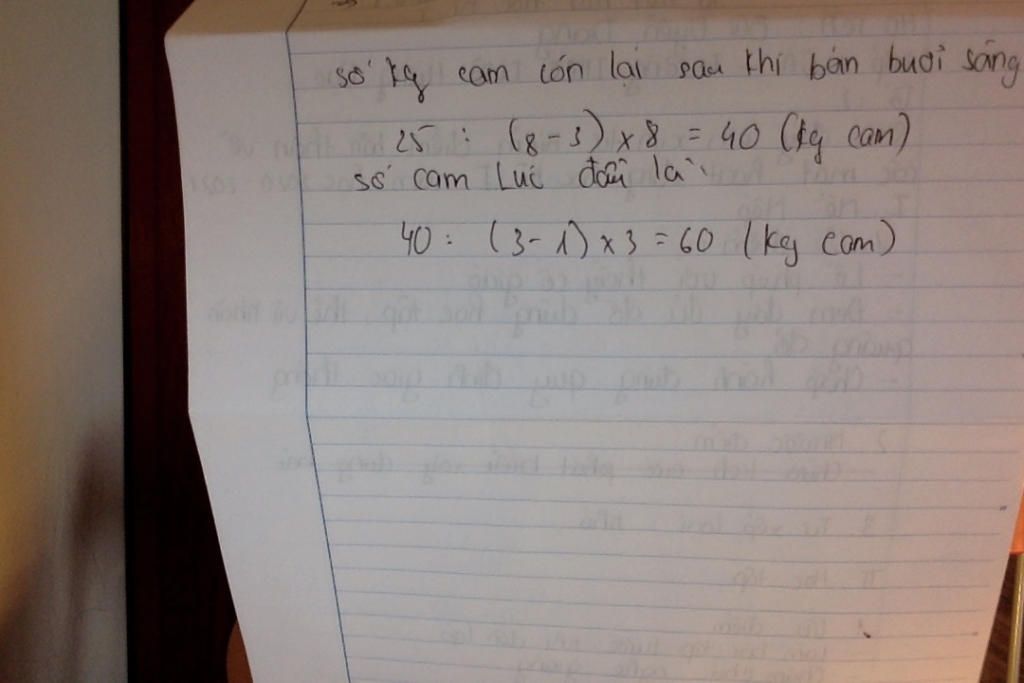 số kg cam còn lại sau khi bán buổi sáng
25 : (8-3) x 8 = 40 (kg cam)
số cam Lúc đầu là:
40 : (3-1) x 3 = 60 (kg cam)